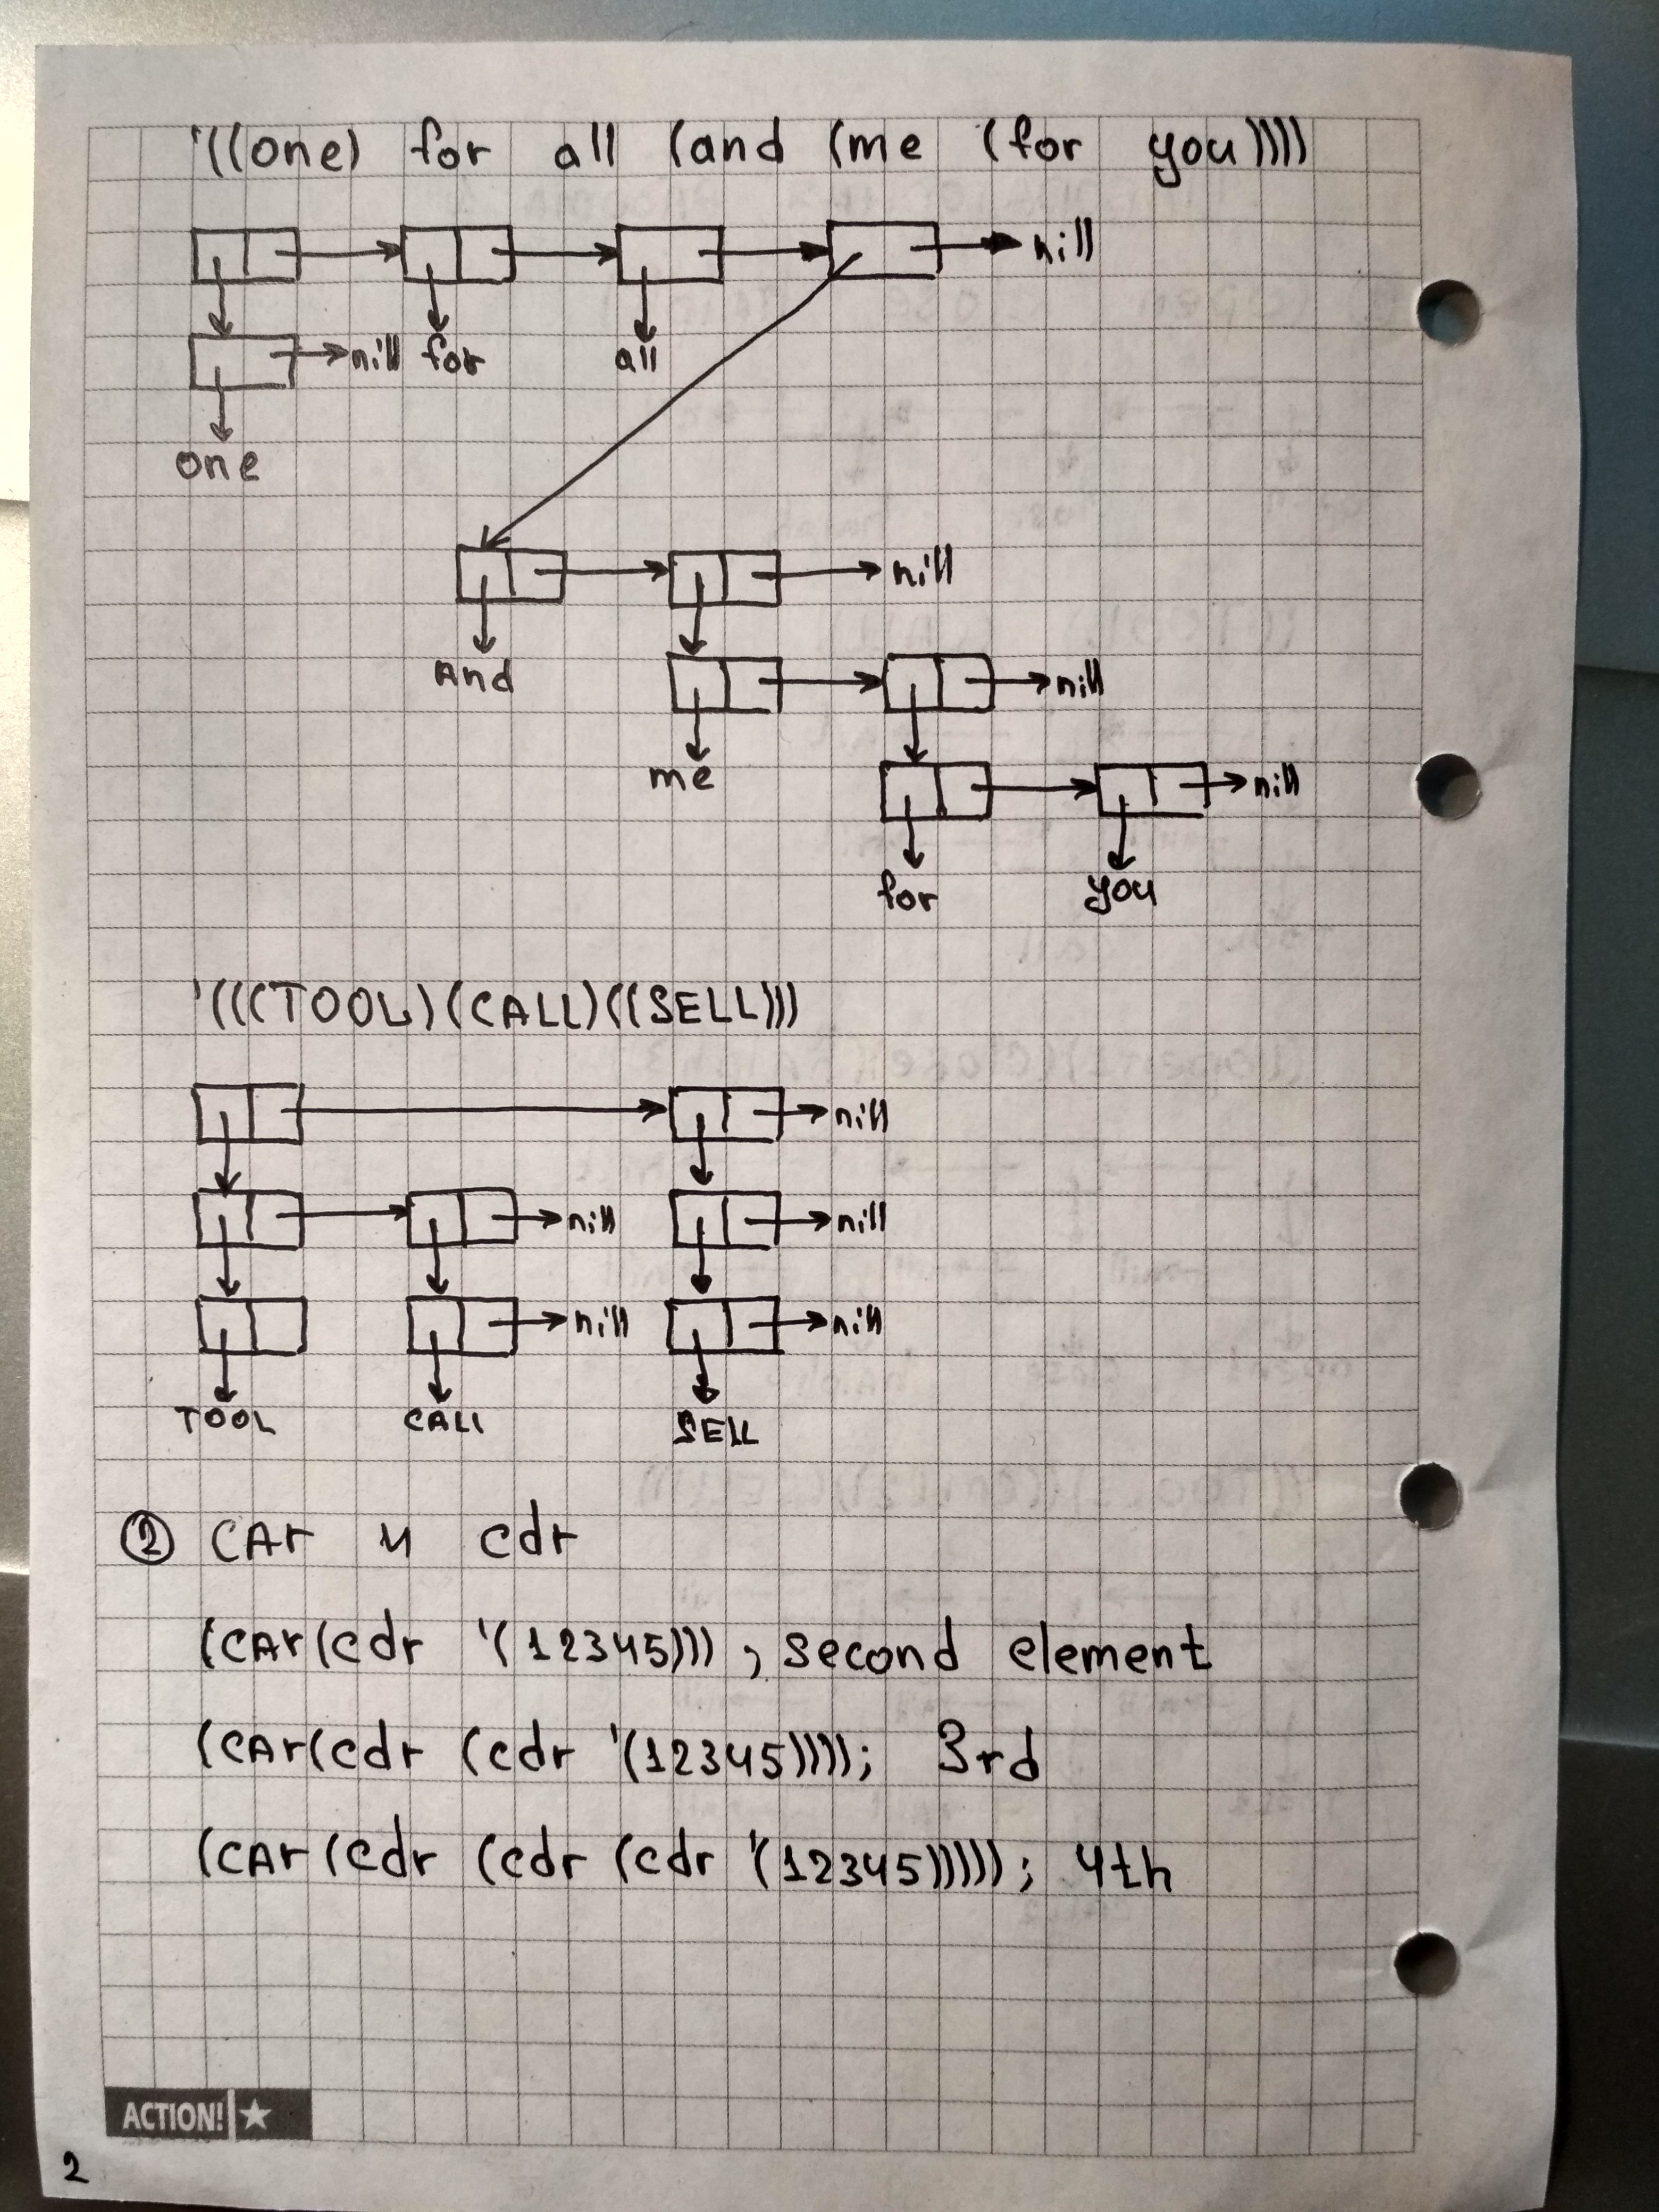 '((one) for all (and (me (for you))))
nill
nill for all
one
nill
And
nill
me
nill
for you
'(((TOOL)(CALL)((SELL)))
nill
nill nill
nill nill
TOOL CALL SELL
② CAr и cdr
(CAr(cdr '(12345))) ; second element
(CAr(cdr (cdr '(12345)))); 3rd
(CAr(cdr (cdr (cdr '(12345))))); 4th
ACTION!
2